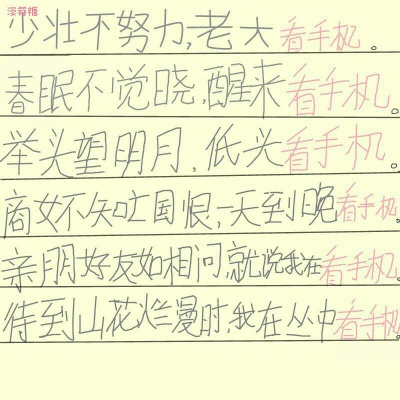 没带糖
少壮不努力,老大看手机。
春眠不觉晓,醒来看手机。
举头望明月,低头看手机。
商女不知亡国恨,一天到晚看手机。
亲朋好友如相问,就说我在看手机。
待到山花烂漫时,我在丛中看手机。